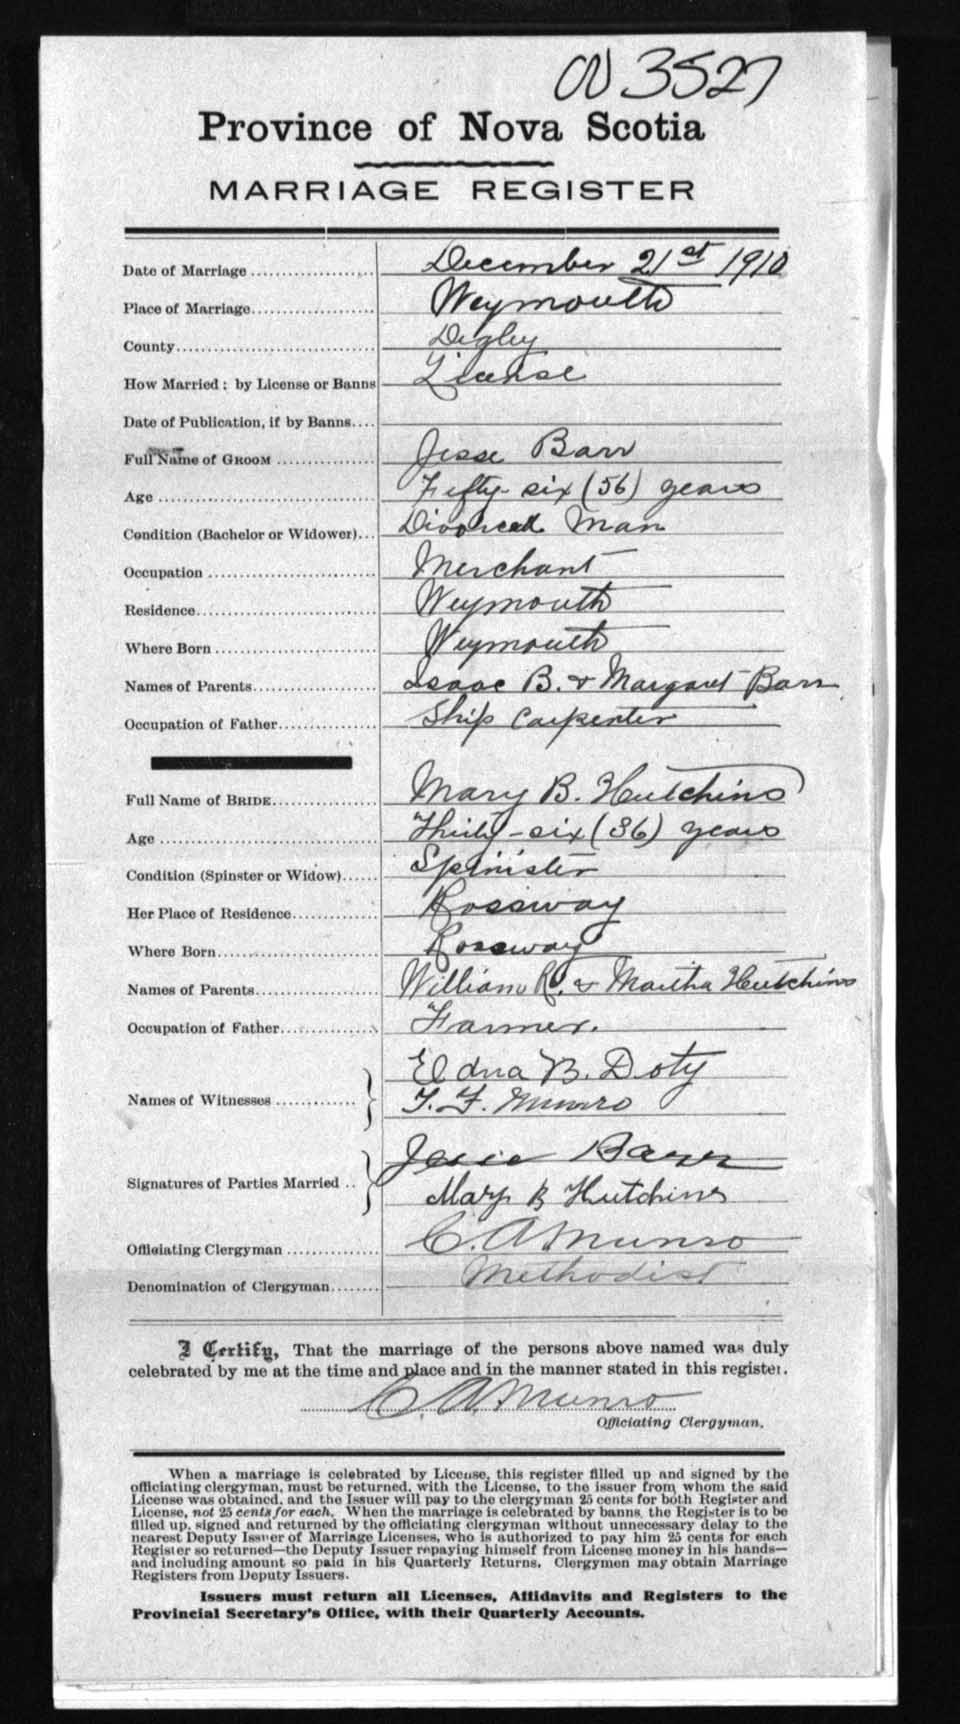 3527
Province of Nova Scotia
MARRIAGE REGISTER
Date of Marriage .................... December 21st 1910
Place of Marriage.................... Weymouth
County.............................. Digby
How Married ; by License or Banns License
Date of Publication, if by Banns....
Full Name of GROOM .............. Jesse Barr
Age ................................ Fifty-six (56) years
Condition (Bachelor or Widower)... Divorced Man
Occupation ......................... Merchant
Residence.......................... Weymouth
Where Born ........................ Weymouth
Names of Parents.................. Isaac B. & Margaret Barr
Occupation of Father.............. Ship Carpenter
Full Name of BRIDE............... Mary B. Hutchins
Age ................................ Thirty-six (36) years
Condition (Spinster or Widow)...... Spinister
Her Place of Residence............. Rossway
Where Born........................ Rossway
Names of Parents.................. William R. & Martha Hutchins
Occupation of Father.............. Farmer.
Names of Witnesses ............ } Edna B. Doty
T. F. Munro
Signatures of Parties Married .. } Jesse Barr
Mary B Hutchins
Officiating Clergyman ............. C. A Munro
Denomination of Clergyman........ Methodist
I Certify, That the marriage of the persons above named was duly
celebrated by me at the time and place and in the manner stated in this register.
C. A. Munro
Officiating Clergyman.
When a marriage is celebrated by License, this register filled up and signed by the
officiating clergyman, must be returned, with the License, to the issuer from whom the said
License was obtained, and the Issuer will pay to the clergyman 25 cents for both Register and
License, not 25 cents for each. When the marriage is celebrated by banns, the Register is to be
filled up, signed and returned by the officiating clergyman without unnecessary delay to the
nearest Deputy Issuer of Marriage Licenses, who is authorized to pay him 25 cents for each
Register so returned—the Deputy Issuer repaying himself from License money in his hands—
and including amount so paid in his Quarterly Returns. Clergymen may obtain Marriage
Registers from Deputy Issuers.
Issuers must return all Licenses, Affidavits and Registers to the
Provincial Secretary's Office, with their Quarterly Accounts.